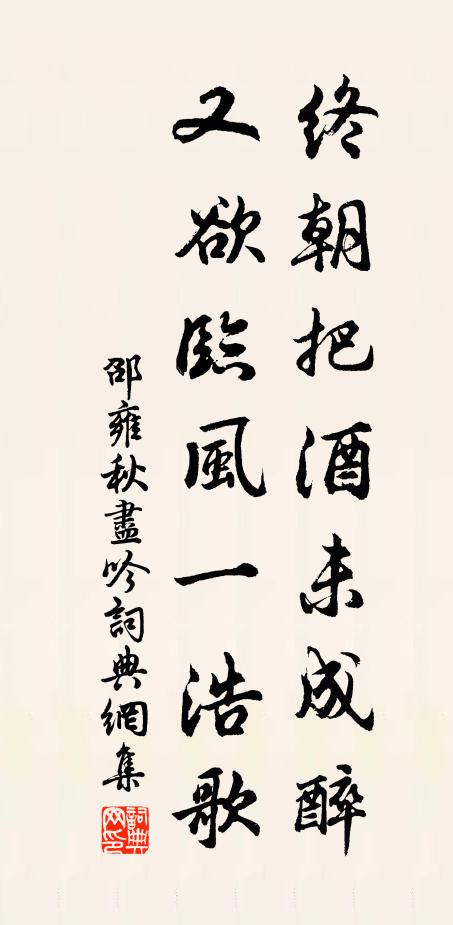 終朝把酒未成醉
又欲臨風一浩歌
邵雍秋盡吟詞典網集
詞典網印